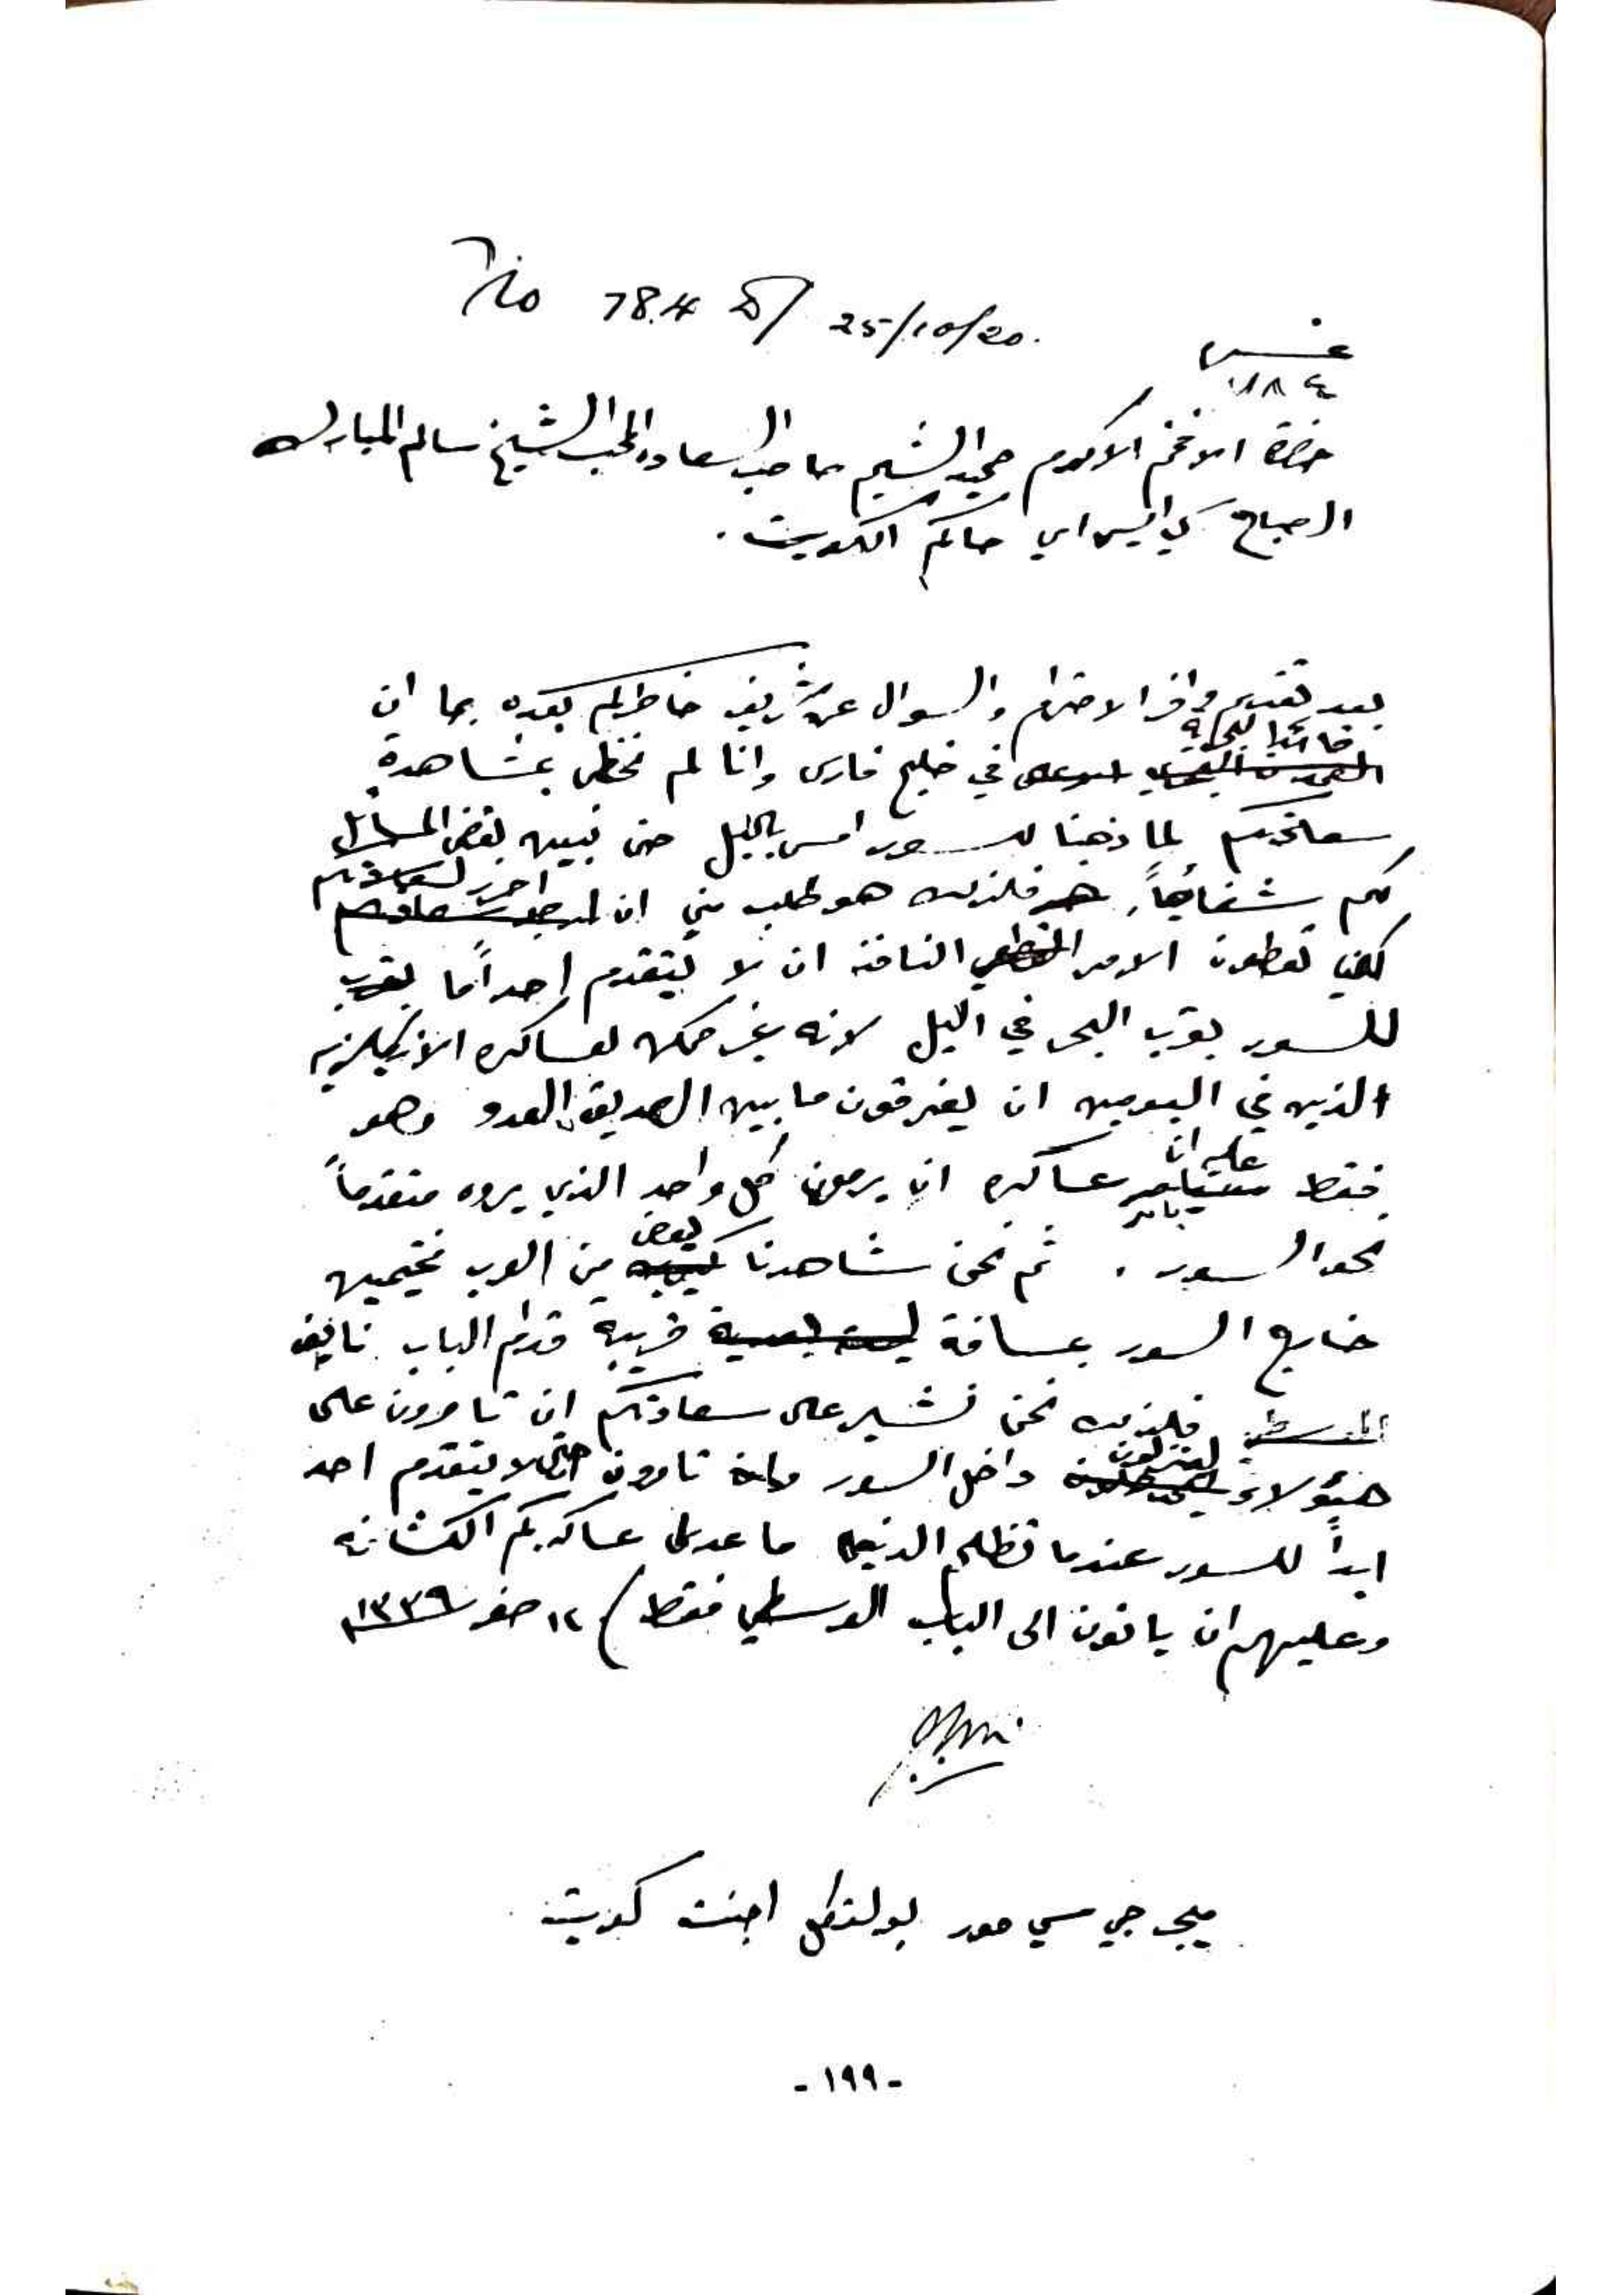 No 784 D/ 25/10/20.
نمبر
٧٨٤
حضرة الافخم الاكرم حميد الشيم صاحب السعاده المحب الشيخ سالم المبارك
الصباح كي ايس اي حاكم الكويت.
بعد تقديم وافر الاحترام والسوال عن شريف خاطركم بعده بما ان
قائد البحرية
في خليج فارس وانا لم نحظى بمشاهدة
سعادتكم لما ذهبنا للسور امس بالليل حتى نبين بعض المسائل
لكم شفاهاً، فلذلك هو طلب مني ان احرر لسعادتكم
لكي تعطون الامر النافذ ان لا يتقدم احداً ما
للسور بقرب البحر في الليل لانه غير ممكن لعساكره الانكليزيه
الذين في اليومين ان يفرقون ما بين الصديق والعدو وهو
فقط عليه ان يامر عساكره ان يرمون كل واحد الذي يروه متقدماً
نحو السور . ثم نحن شاهدنا بعض من العرب مخيمين
خارج السور بمسافة قريبة قدام الباب نايف
فلذلك نحن نشير على سعادتكم ان تامرون على
هئولاء لينزلون داخل السور وان تامرون حتى لا يتقدم احد
ابداً للسور عندما تظلم الدنيا ما عدى عساكركم الكشافه
وعليهم ان ياتون الى الباب الوسطي فقط) ١٢ صفر ١٣٣٩
ميجر جي سي مور بولتكل اجنت كويت
- ١٩٩ -